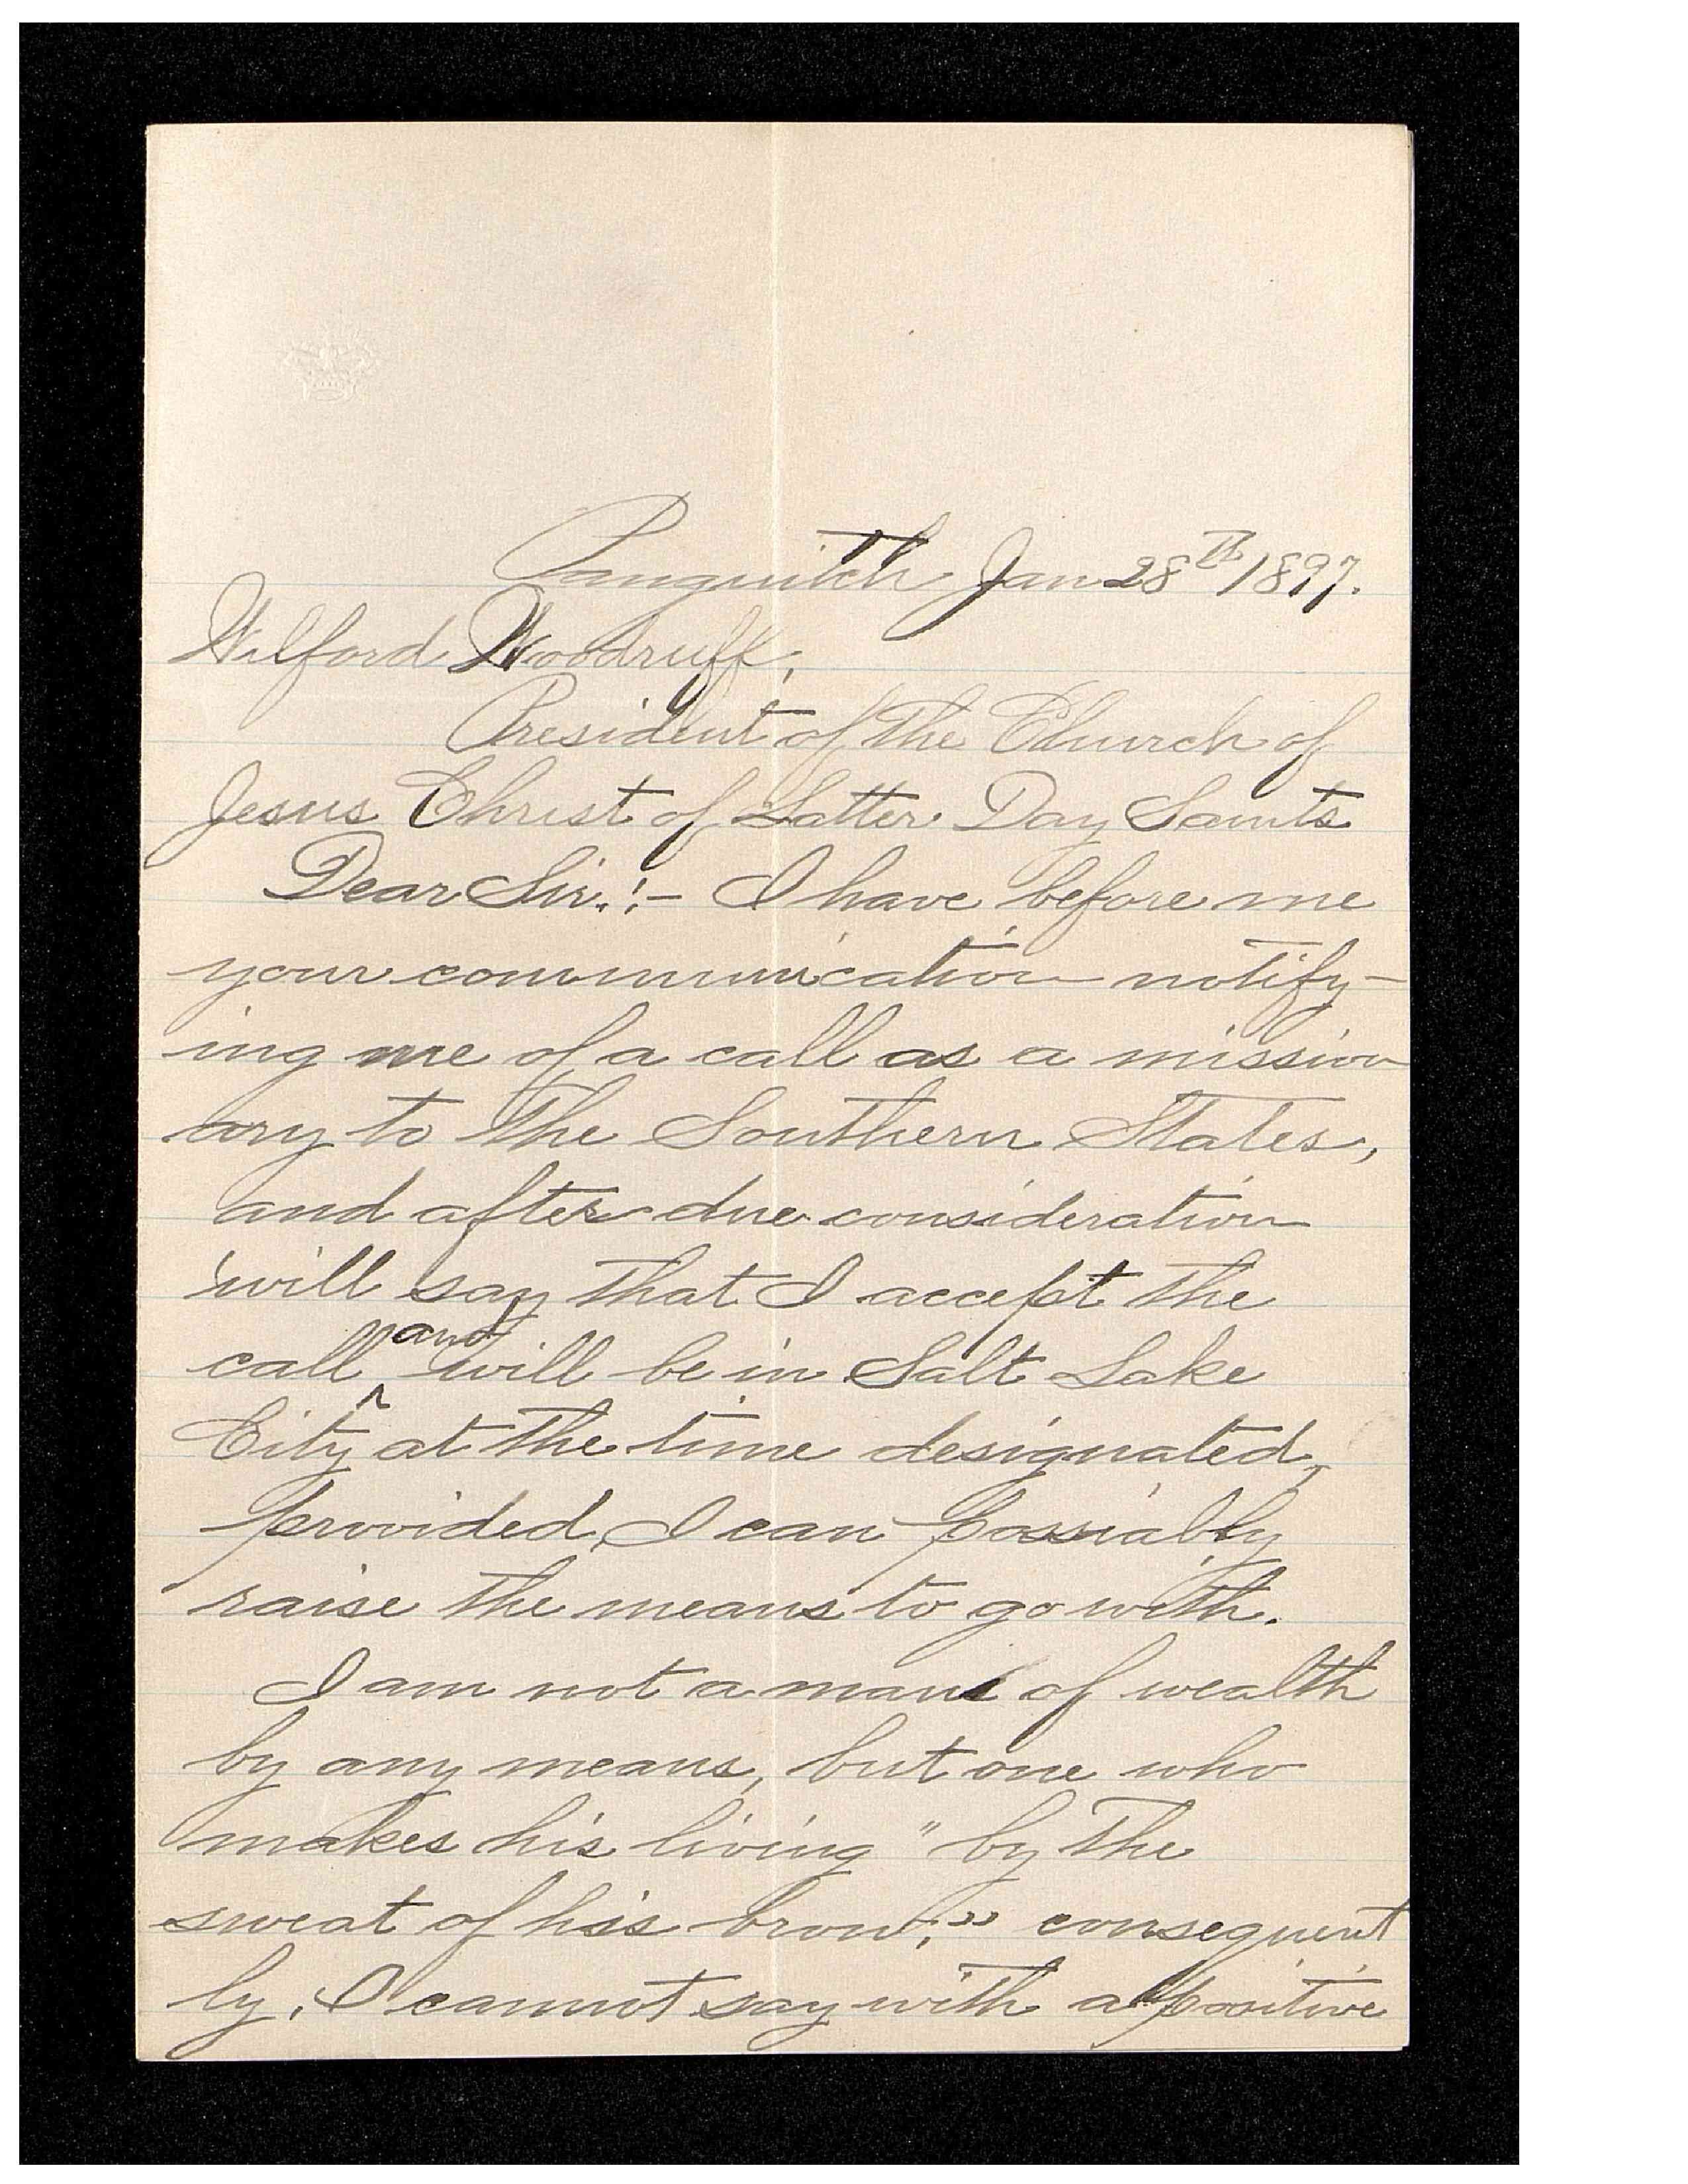 Panguitch Jan 28th 1897.
Wilford Woodruff,
President of the Church of
Jesus Christ of Latter Day Saints
Dear Sir.:- I have before me
your communication notify-
ing me of a call as a mission
ary to the Southern States,
and after due consideration
will say that I accept the
and
call ^ will be in Salt Lake
City at the time designated,
provided, I can possiably
raise the means to go with.
I am not a man of wealth
by any means, but one who
makes his living "by the
sweat of his brow;" consequent
ly, I cannot say with a positive